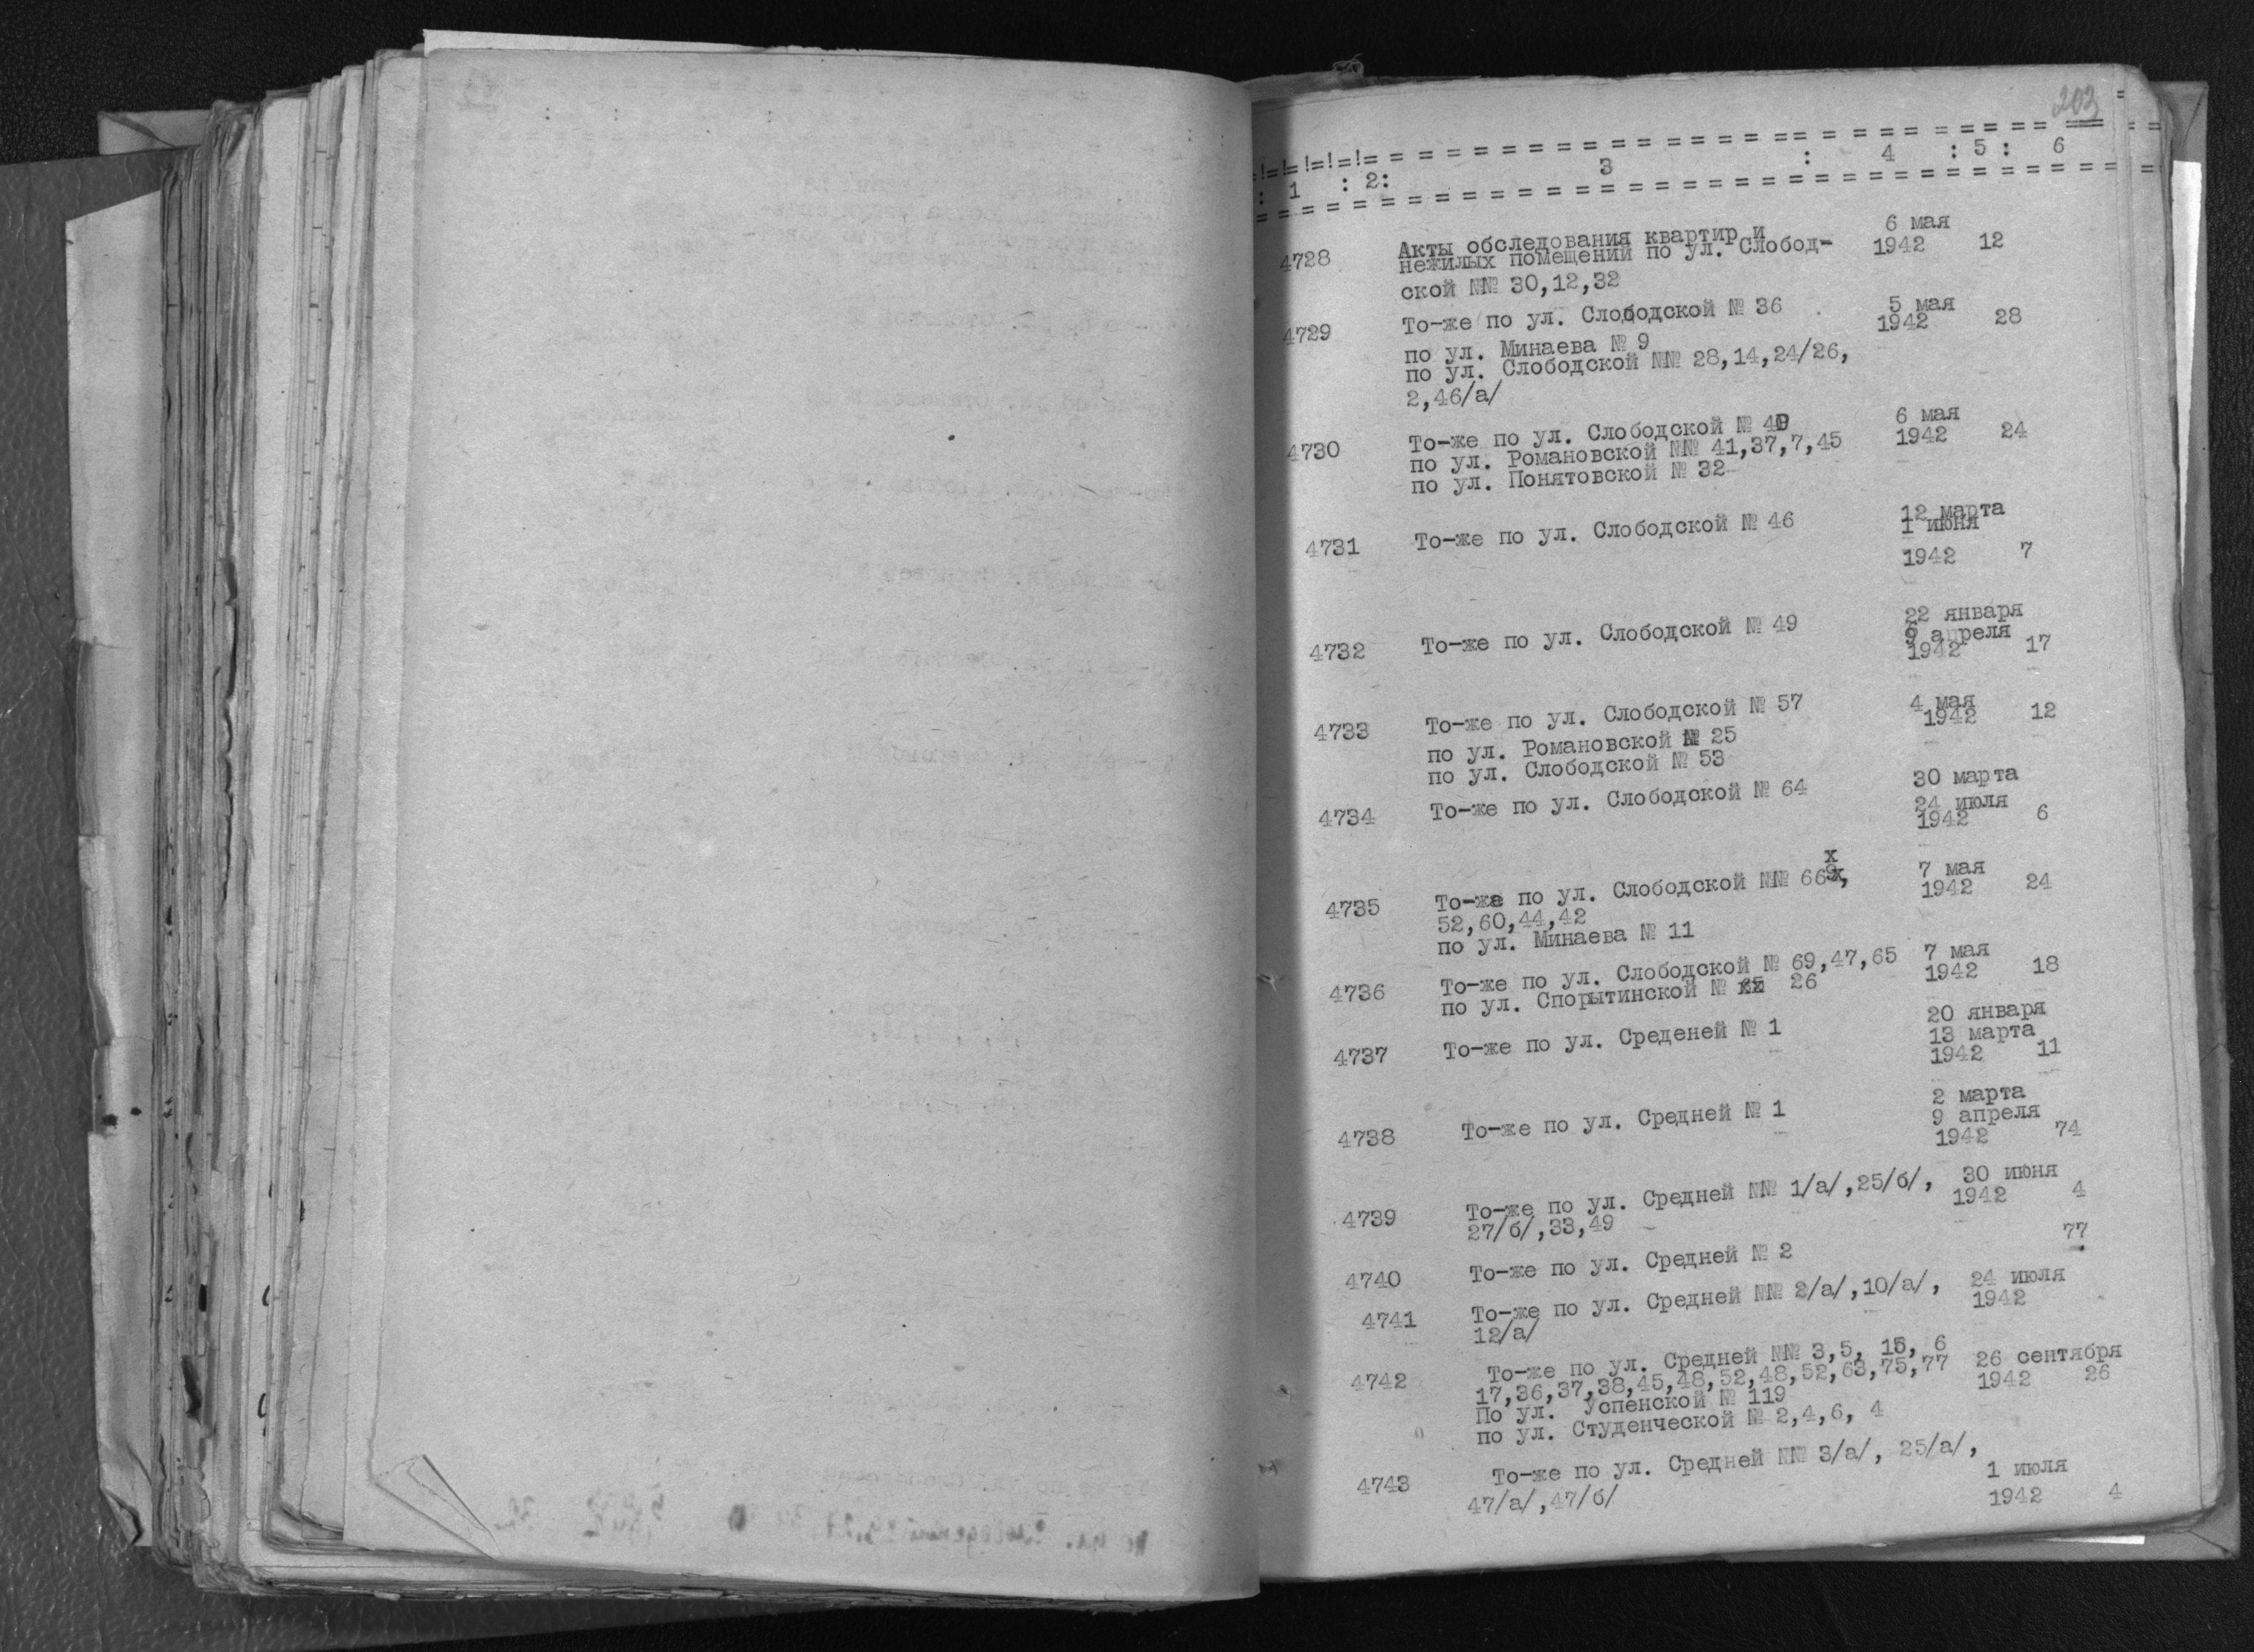 203
1 : 2: 3 : 4 : 5 : 6
4728 Акты обследования квартир и 6 мая
нежилых помещений по ул. Слобод- 1942 12
ской №№ 30,12,32
4729 То-же по ул. Слободской № 36 5 мая
1942 28
по ул. Минаева № 9
по ул. Слободской №№ 28,14,24/26,
2,46/а/
4730 То-же по ул. Слободской № 40 6 мая
по ул. Романовской №№ 41,37,7,45 1942 24
по ул. Понятовской № 32
4731 То-же по ул. Слободской № 46 12 марта
1 июня
1942 7
4732 То-же по ул. Слободской № 49 22 января
9 апреля
1942 17
4733 То-же по ул. Слободской № 57 4 мая
1942 12
по ул. Романовской № 25
по ул. Слободской № 53
4734 То-же по ул. Слободской № 64 30 марта
24 июля
1942 6
4735 То-же по ул. Слободской №№ 66, 7 мая
52,60,44,42 1942 24
по ул. Минаева № 11
4736 То-же по ул. Слободской № 69,47,65 7 мая
по ул. Спорытинской № 26 1942 18
4737 То-же по ул. Среденей № 1 20 января
13 марта
1942 11
4738 То-же по ул. Средней № 1 2 марта
9 апреля
1942 74
4739 То-же по ул. Средней №№ 1/а/,25/б/, 30 июня
27/б/,33,49 1942 4
4740 То-же по ул. Средней № 2 77
4741 То-же по ул. Средней №№ 2/а/,10/а/, 24 июля
12/а/ 1942
4742 То-же по ул. Средней №№ 3,5, 15, 6
17,36,37,38,45,48,52,48,52,63,75,77 26 сентября
По ул. Успенской № 119 1942 26
по ул. Студенческой № 2,4,6, 4
4743 То-же по ул. Средней №№ 3/а/, 25/а/,
47/а/,47/б/ 1 июля
1942 4